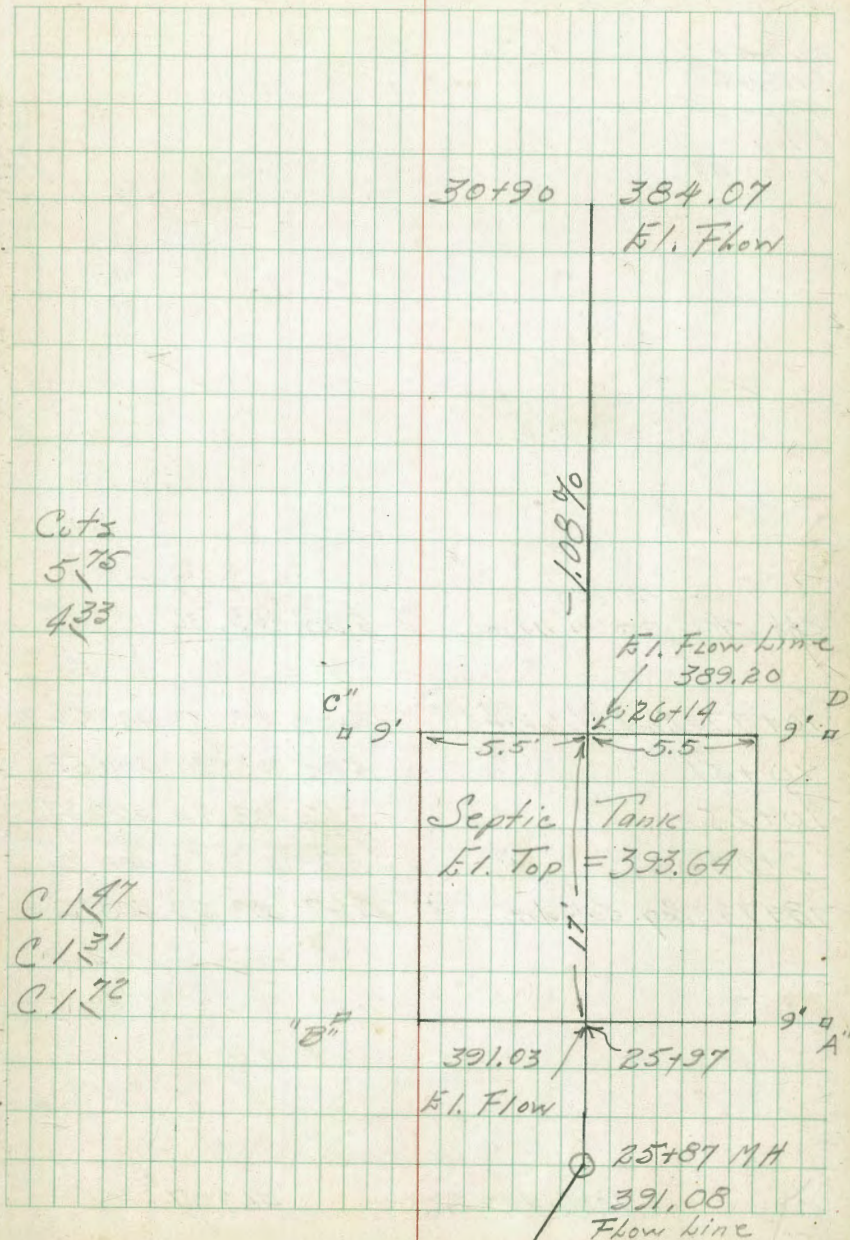 30+90 384.07
El. Flow
-1.08%
Cuts
5.75
4.33
El. Flow Line
389.20
C" 9' 26+14 9' D
5.5' 5.5
Septic Tank
El. Top = 393.64
17'
C 1.47
C 1.31
C 1.72
"B" 9' A"
391.03 25+97
El. Flow
25+87 MH
391.08
Flow Line